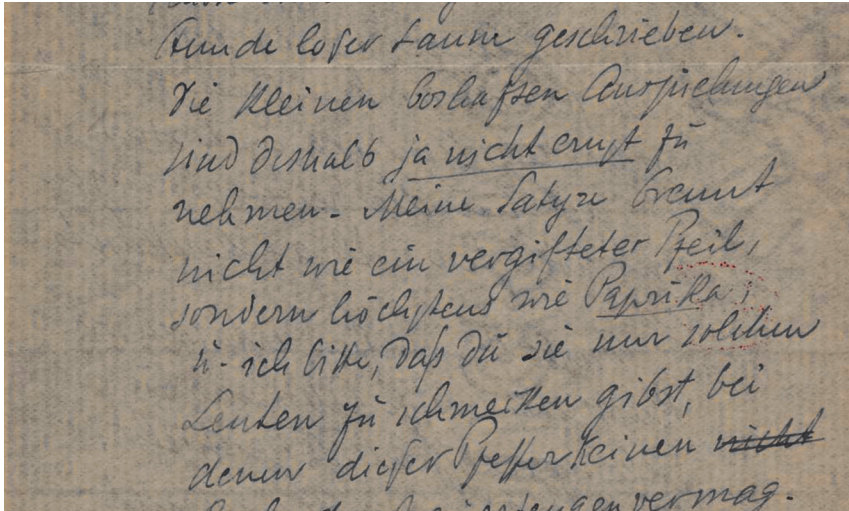 Stunde loser Laune geschrieben.
Die kleinen boshaften Anspielungen
sind deshalb ja nicht ernst zu
nehmen. Meine Satyre brennt
nicht wie ein vergifteter Pfeil,
sondern höchstens wie Paprika,
u. ich bitte, daß du sie nur solchen
Leuten zu schmecken gibst, bei
denen dieser Pfeffer keinen nicht
vermag.